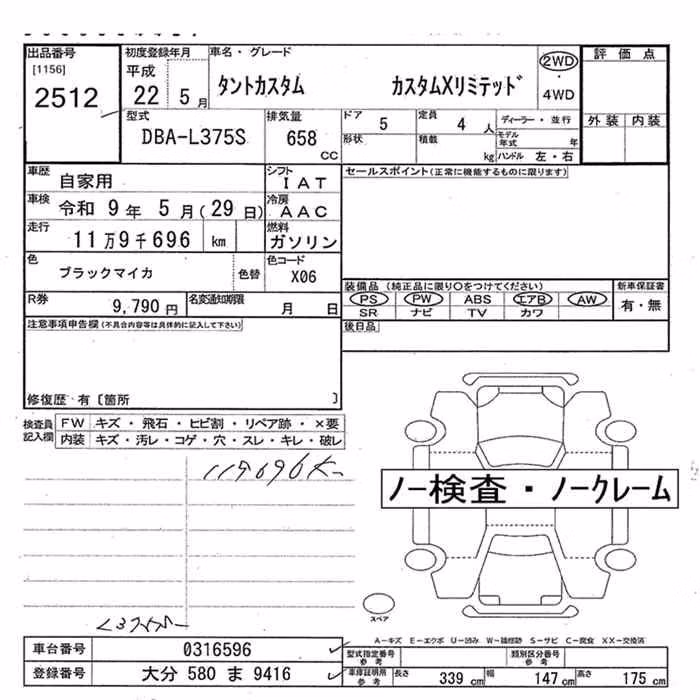 出品番号 初度登録年月 車名・グレード 評価点
[1156] 平成 2WD
2512 22 5月 タントカスタム カスタムXリミテッド ・
4WD
型式 排気量 ドア 5 定員 4人 ディーラー・並行 外装 内装
DBA-L375S 658 cc 形状 積載 kg モデル年式 年
ハンドル 左・右
車歴 自家用 シフト IAT セールスポイント(正常に機能するものに限ります)
車検 令和 9年 5月(29日) 冷房 AAC
走行 11万9千696 km 燃料 ガソリン
色 ブラックマイカ 色替 色コード X06
装備品(純正品に限り○をつけてください) 新車保証書
R券 9,790円 名変通知期限 月 日 PS PW ABS エアB AW 有・無
SR ナビ TV カワ
注意事項申告欄(不具合内容等は具体的に記入して下さい) 後日品
修復歴 有〔箇所 〕
検査員記入欄 FW キズ・飛石・ヒビ割・リペア跡・×要
内装 キズ・汚レ・コゲ・穴・スレ・キレ・破レ
119696K
ノー検査・ノークレーム
スペア
L375S
A-キズ E-エクボ U-凹み W-補修跡 S-サビ C-腐食 XX-交換済
車台番号 0316596 型式指定番号 参考 類別区分番号 参考
登録番号 大分 580 ま 9416 車庫証明所 参考 長さ 339 cm 幅 147 cm 高さ 175 cm